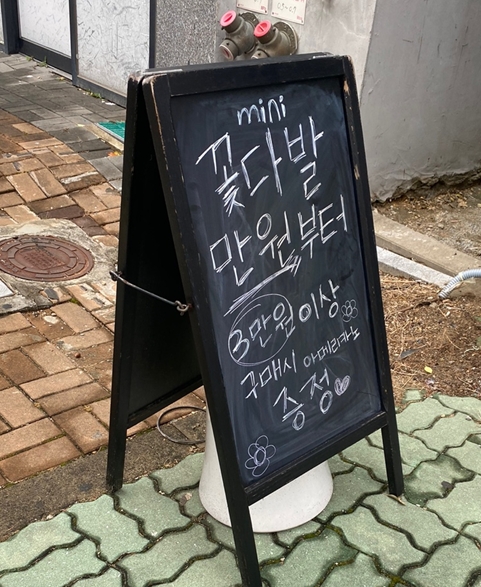 mini
꽃다발
만원부터
3만원이상
구매시 아메리카노
승정